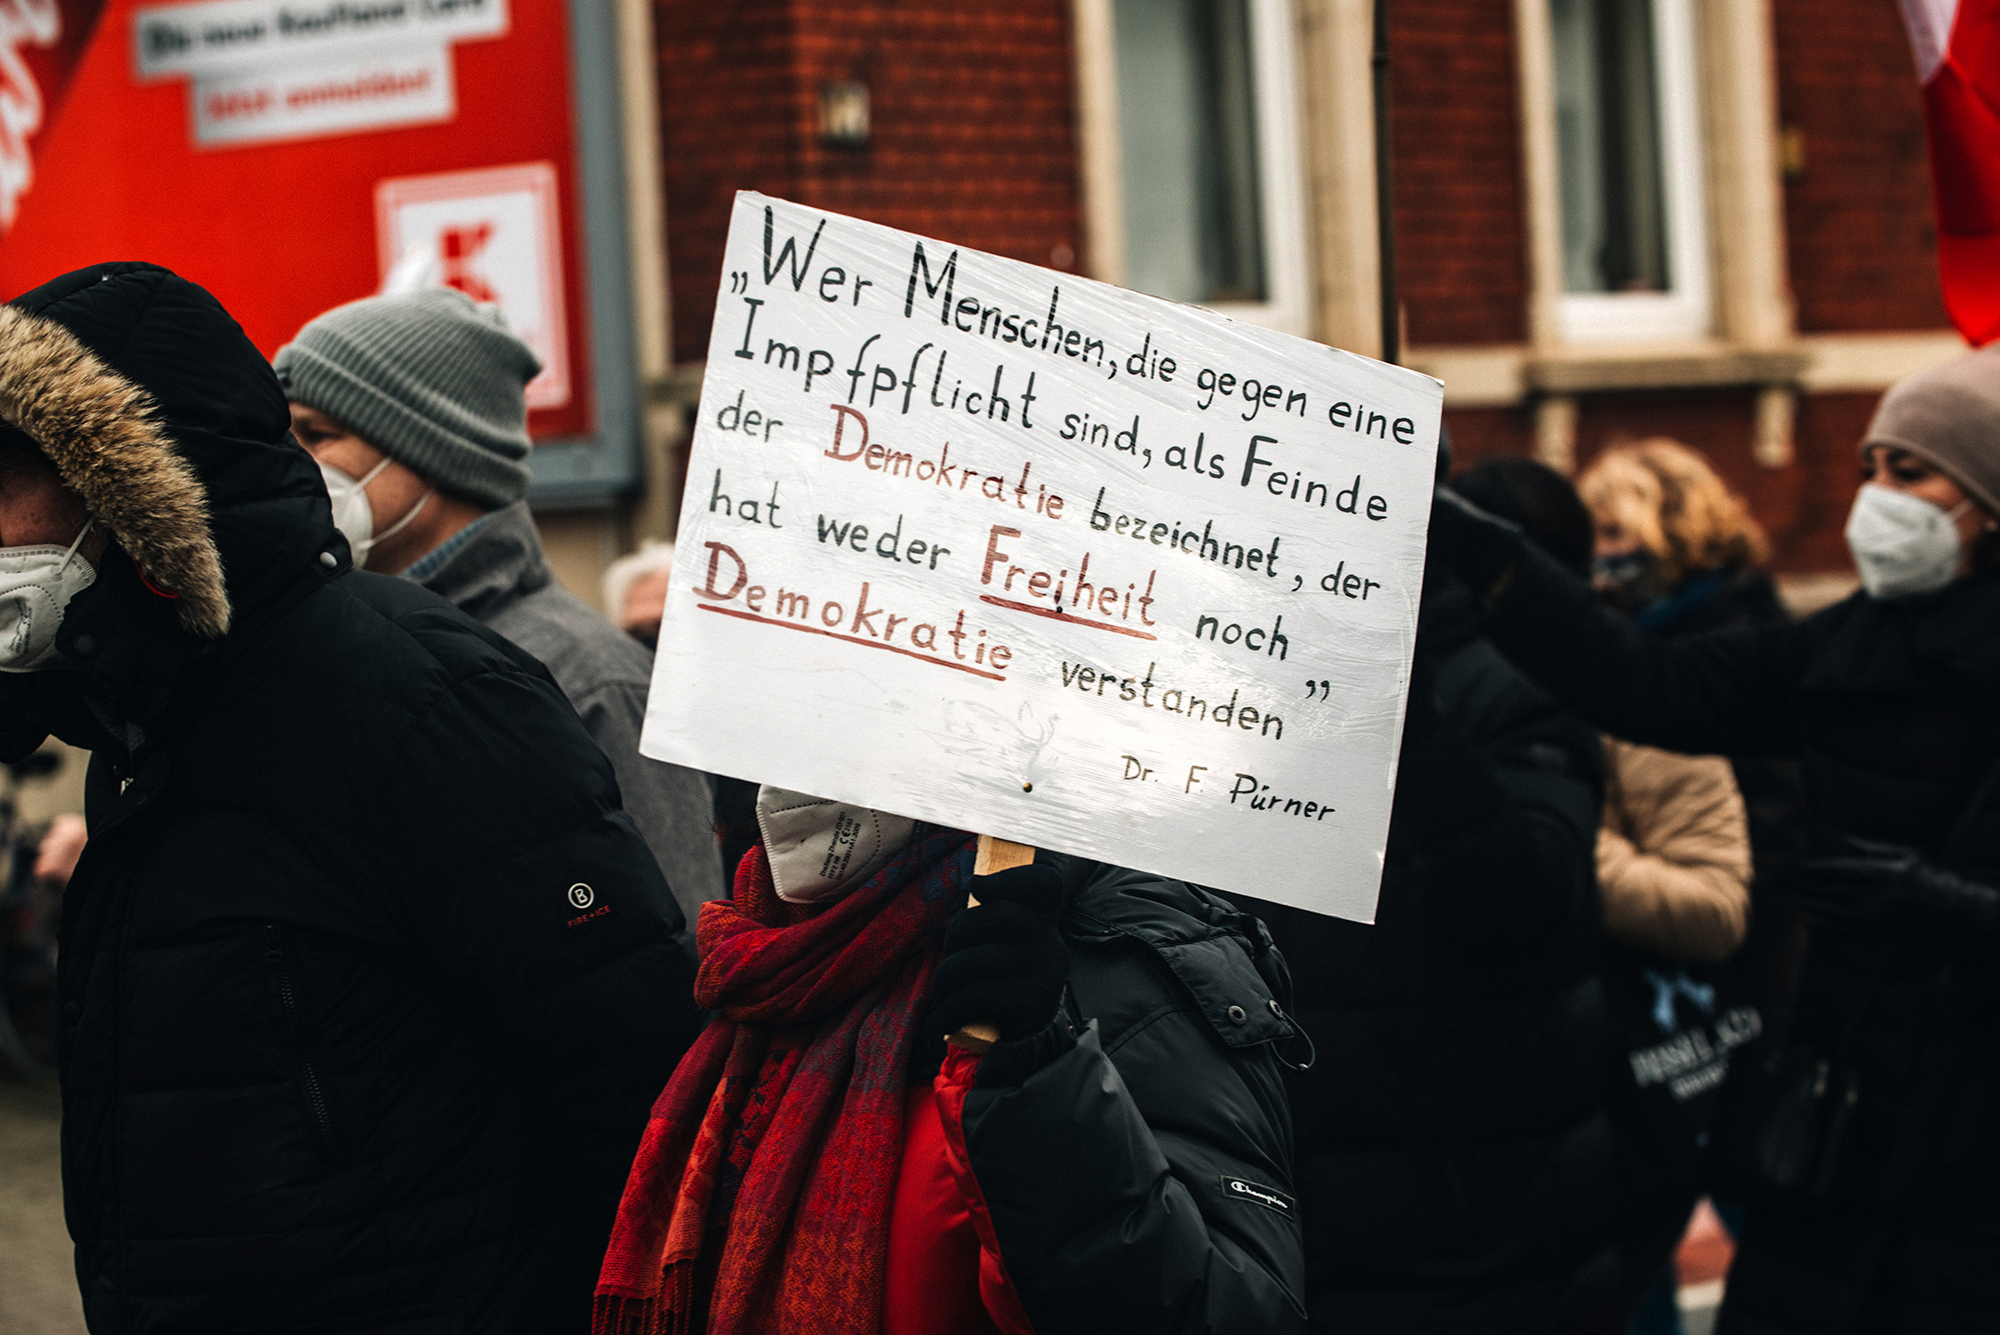 Die neue Kaufland Card
Jetzt anmelden!
K
„Wer Menschen, die gegen eine
Impfpflicht sind, als Feinde
der Demokratie bezeichnet, der
hat weder Freiheit noch
Demokratie verstanden”
Dr. F. Pürner
B
FIRE+ICE
Champion